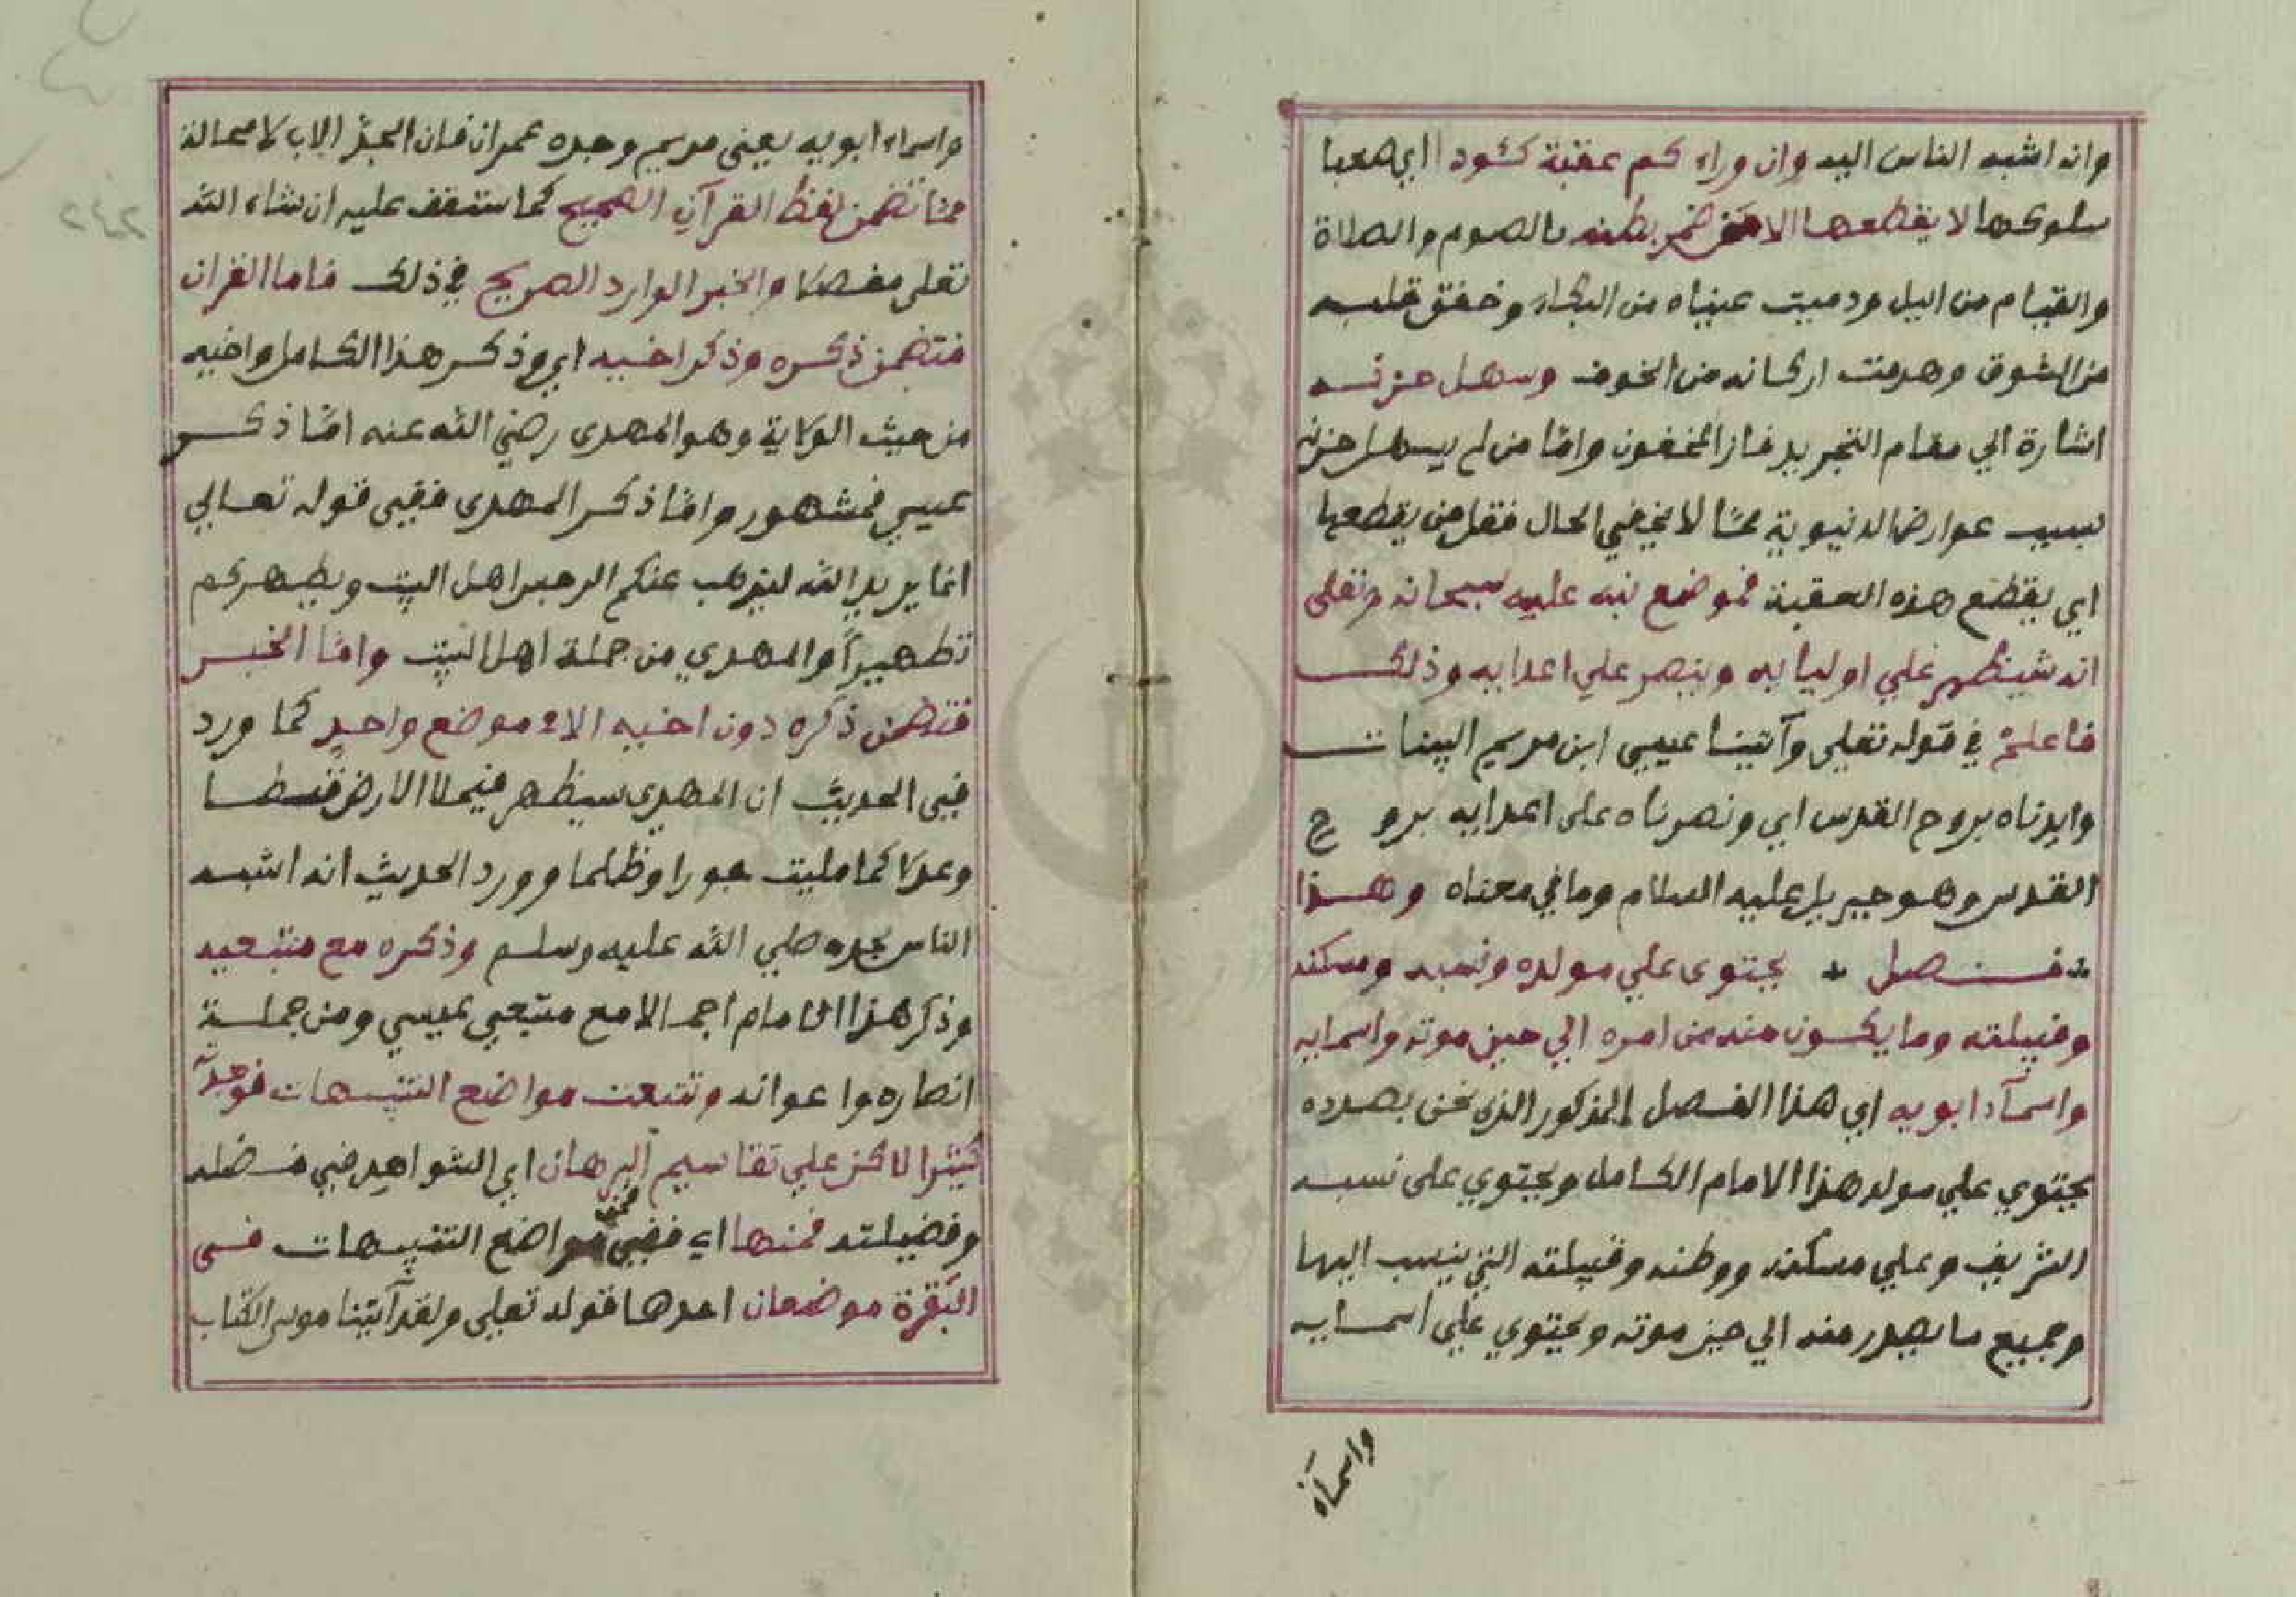 وانه اشبه الناس اليه وان وراء كم عقبة كئود اي صعبا
سلوكها لا يقطعها الا من ضمر بطنه بالصوم والصلاة
والقيام من اليل ودميت عيناه من البكاء وخفق قلبه
من الشوق وهدمت اركانه من الخوف وسهل حزنه
اشارة الي مقام التجريد فاز المخفون وامّا من لم يسهل حزنه
بسبب عوارض الدنيوية ممّا لا يخفي الحال فقل من يقطعها
اي يقطع هذه العقبة فموضع نبه عليه سبحانه وتعلى
انه سيظهر علي اوليايه وينصر علي اعدايه وذلك
فاعلمْ في قوله تعلي وآتينا عيسي ابن مريم البينات
وايدناه بروح القدس اي ونصرناه على اعدايه بروح
القدس وهو جبريل عليه السلام وما في معناه وهذا
فصل يحتوى علي مولده ونسبه ومسكنه
وقبيلته وما يكون منه من امره الي حين موته واسمايه
واسمآء ابويه اي هذا الفصل المذكور الذي نحن بصدده
يحتوي علي مولد هذا الامام الكامل ويحتوي على نسبه
الشريف وعلي مسكنه ووطنه وقبيلته التي ينسب اليها
وجميع ما يصدر منه الي حين موته ويحتوي علي اسمايه
واسمآء
واسماء ابويه يعني مريم وجده عمران فان الجدّ الاب لا محالة
ممّا تضمن لفظ القرآن الصحيح كما ستقف عليه ان شاء الله
تعلى مفصلا والخبر الوارد الصريح في ذلك فاما القران
فتضمن ذكره وذكر اخيه اي وذكر هذا الكامل واخيه
من حيث الولاية وهو المهدى رضي الله عنه امّا ذكر
عيسي فمشهور وامّا ذكر المهدى ففي قوله تعالي
انما يريد الله ليذهب عنكم الرجس اهل البيت ويطهركم
تطهيراً والمهدي من جملة اهل البيت وامّا الخبر
فتضمن ذكره دون اخيه الا في موضع واحدٍ كما ورد
في الحديث ان المهدي سيظهر فيملا الارض قسطا
وعدلا كما مليت جورا وظلما وورد الحديث انه اشبه
الناس بجده صلي الله عليه وسلم وذكره مع متبعيه
وذكر هذا الامام اجمالا مع متبعي عيسي ومن جملة
انصاره واعوانه وتتبعت مواضع التنبيهات فوجدت
كثيرا لاكن علي تقاسيم البرهان اي الشواهد في فضله
وفضيلته فمنها اي ففي فمن مواضع التنبيهات في
البقرة موضعان احدها قوله تعلي ولقد آتينا موسى الكتاب
٢٤٢